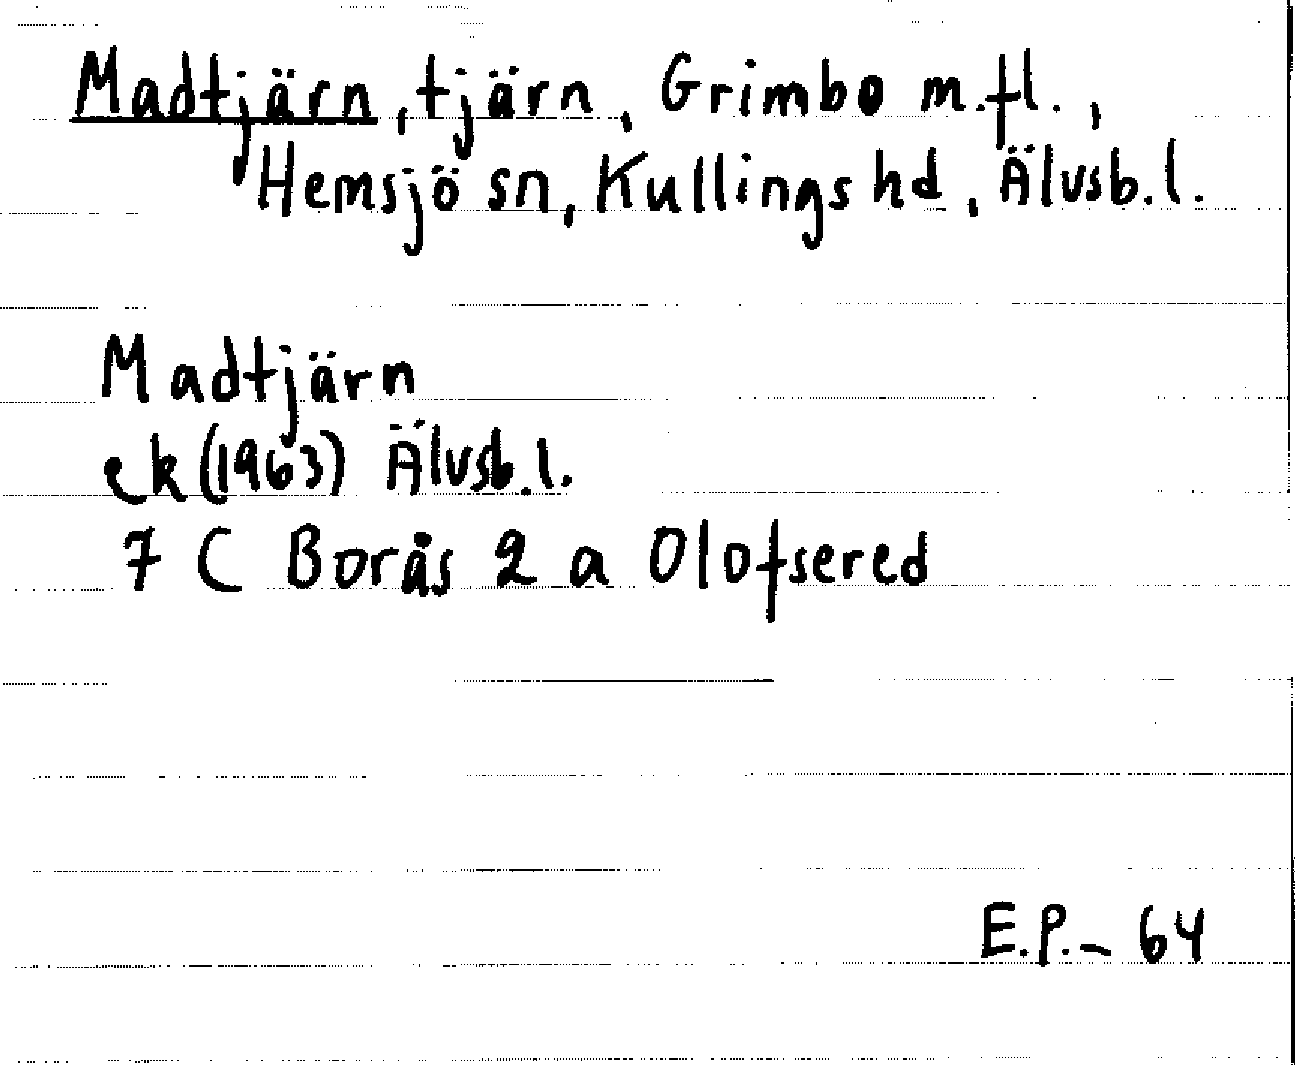 Madtjärn, tjärn, Grimbo m.fl.,
Hemsjö sn, Kullings hd, Älvsb.l.
Madtjärn
ek (1963) Älvsb.l.
7 C Borås 2 a Olofsered
E.P.- 64